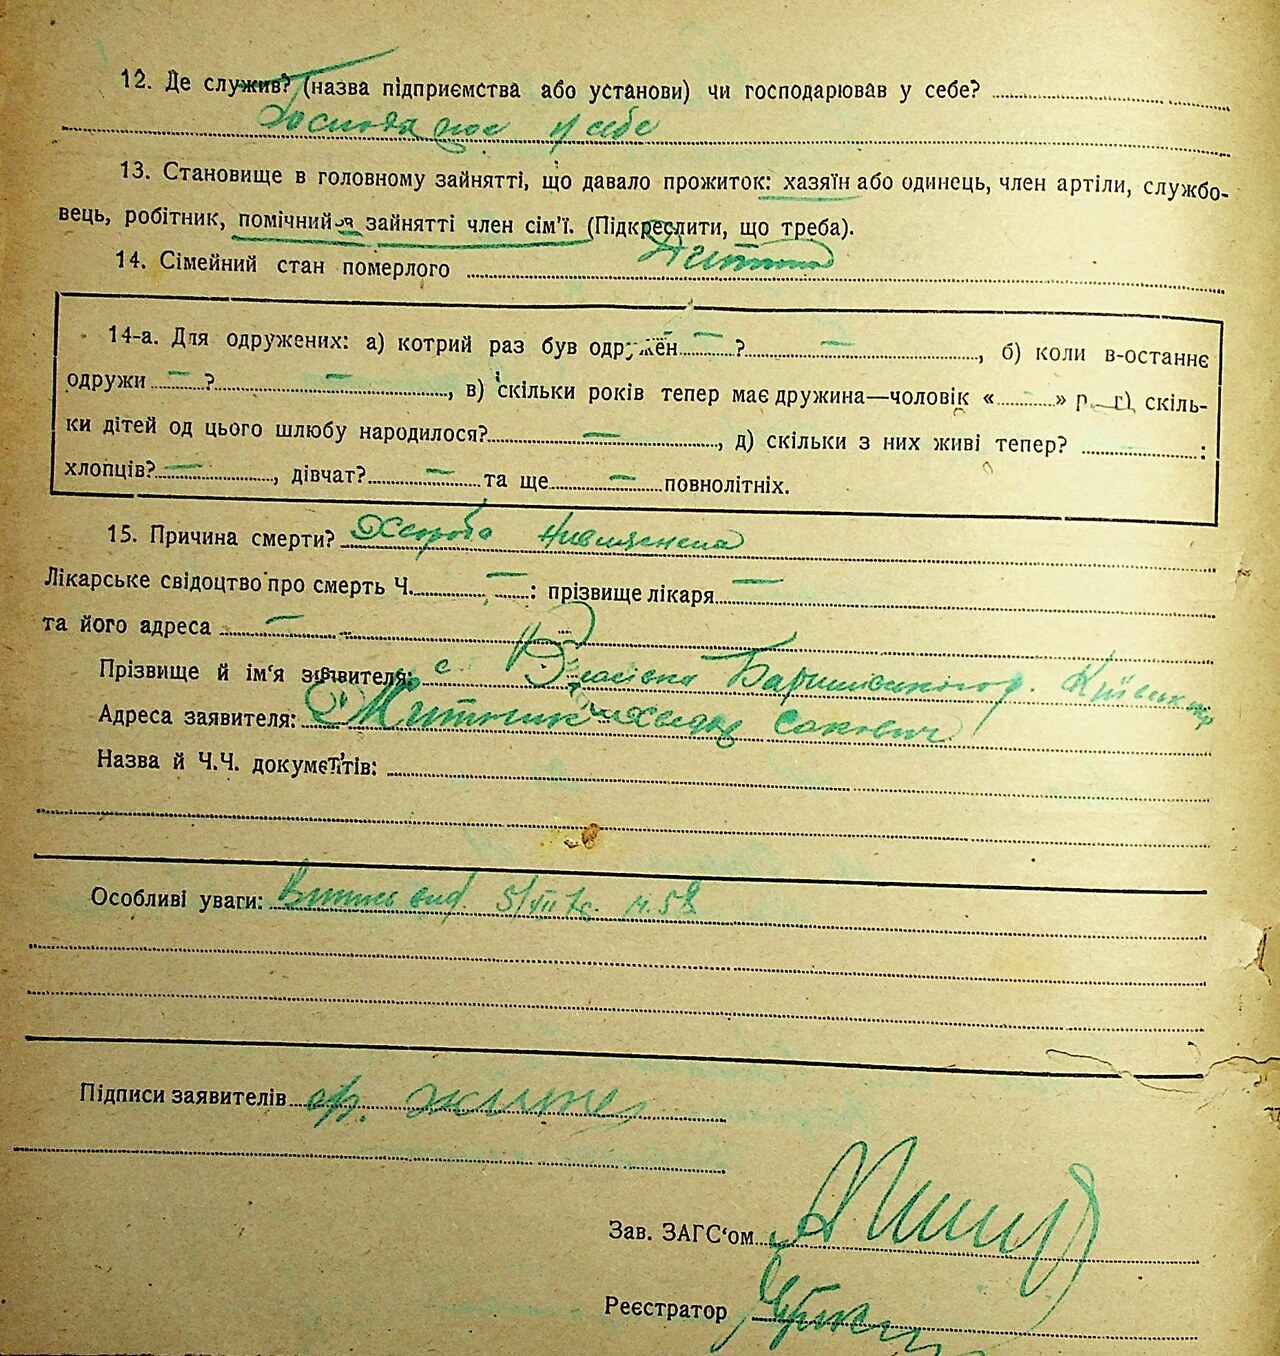 12. Де служив? (назва підприємства або установи) чи господарював у себе?
у себе
13. Становище в головному зайнятті, що давало прожиток: хазяїн або одинець, член артіли, службо-
вець, робітник, помічний в зайнятті член сім'ї. (Підкреслити, що треба).
14. Сімейний стан померлого Дитина
14-а. Для одружених: а) котрий раз був одружён — ? —, б) коли в-останнє
одружи — ? —, в) скільки років тепер має дружина—чоловік « — » р. г) скіль-
ки дітей од цього шлюбу народилося? —, д) скільки з них живі тепер? :
хлопців? —, дівчат? — та ще — повнолітніх.
15. Причина смерти? Хороба
Лікарське свідоцтво про смерть Ч. — : прізвище лікаря —
та його адреса —
Прізвище й ім'я заявителя: с
Адреса заявителя:
Назва й Ч.Ч. документів:
Особливі уваги: Витяг вид. 5/VII
Підписи заявителів
Зав. ЗАГС'ом
Реєстратор